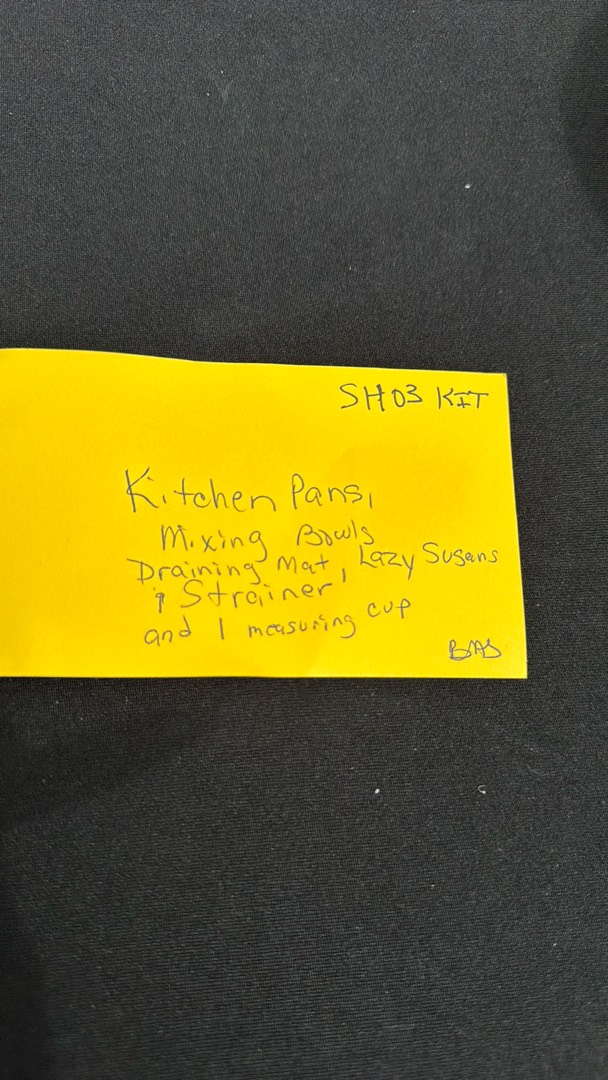 SH03 KIT
Kitchen Pans,
Mixing Bowls
Draining Mat, Lazy Susans
& Strainer
and 1 measuring cup